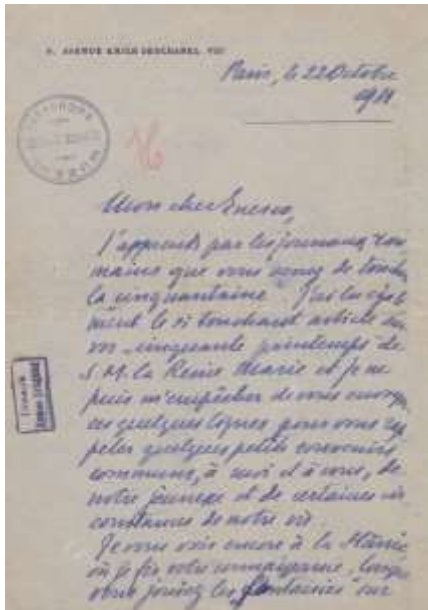 AVENUE EMILE DESCHANEL. VII
Paris, le 22 Octobre
19
Mon cher Enesco,
J'apprends par les journaux rou
mains que vous venez de
la cinquantaine. J'ai lu éga
ment le si touchant article
vos cinquante printemps de
S. M. la Reine Marie et je ne
puis m'empêcher de vous
ces quelques lignes pour vous rap
peler quelques petits souvenirs
communs, à moi et à vous, de
notre jeunesse et de certaines cir
constances de notre vie.
Je vous vois encore à la
où je fis votre connaissance, lorsque
vous jouiez les „fantaisies" sur